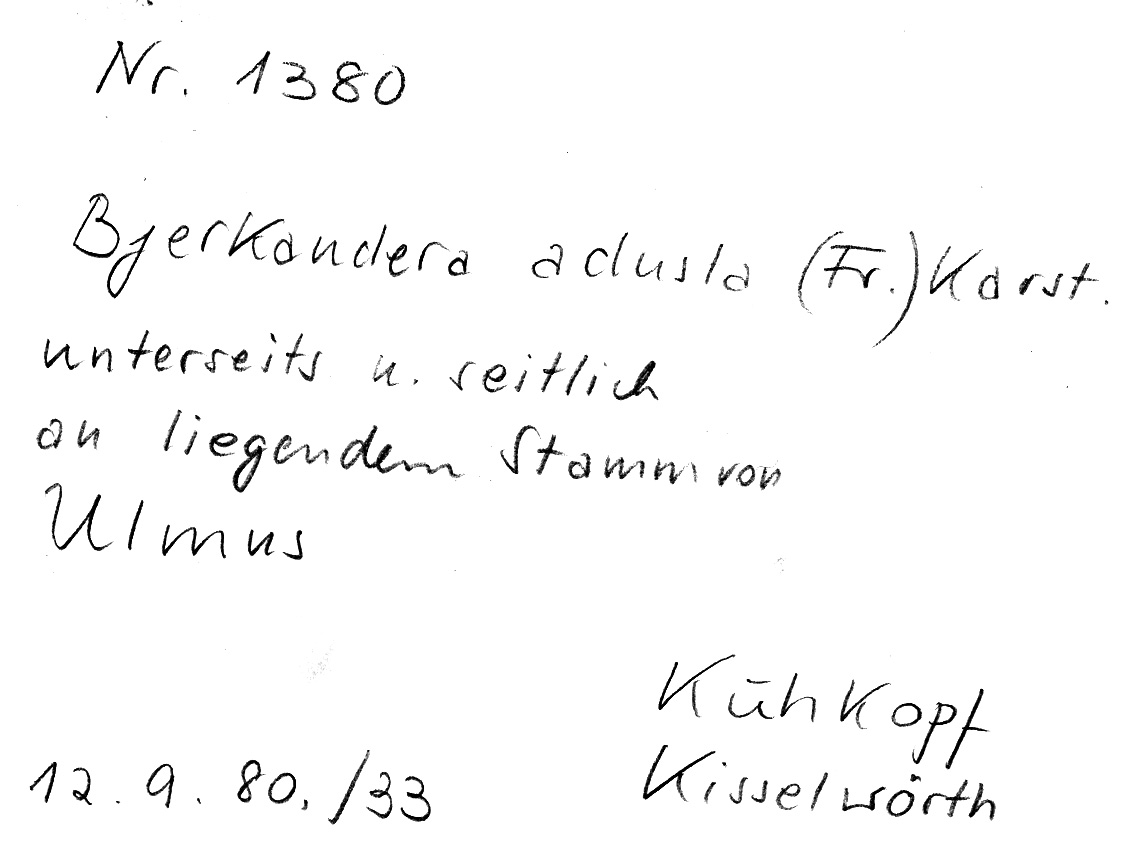 Nr. 1380
Bjerkandera adusta (Fr.) Karst.
unterseits u. seitlich
an liegendem Stamm von
Ulmus
Kühkopf
12.9.80./33 Kisselwörth